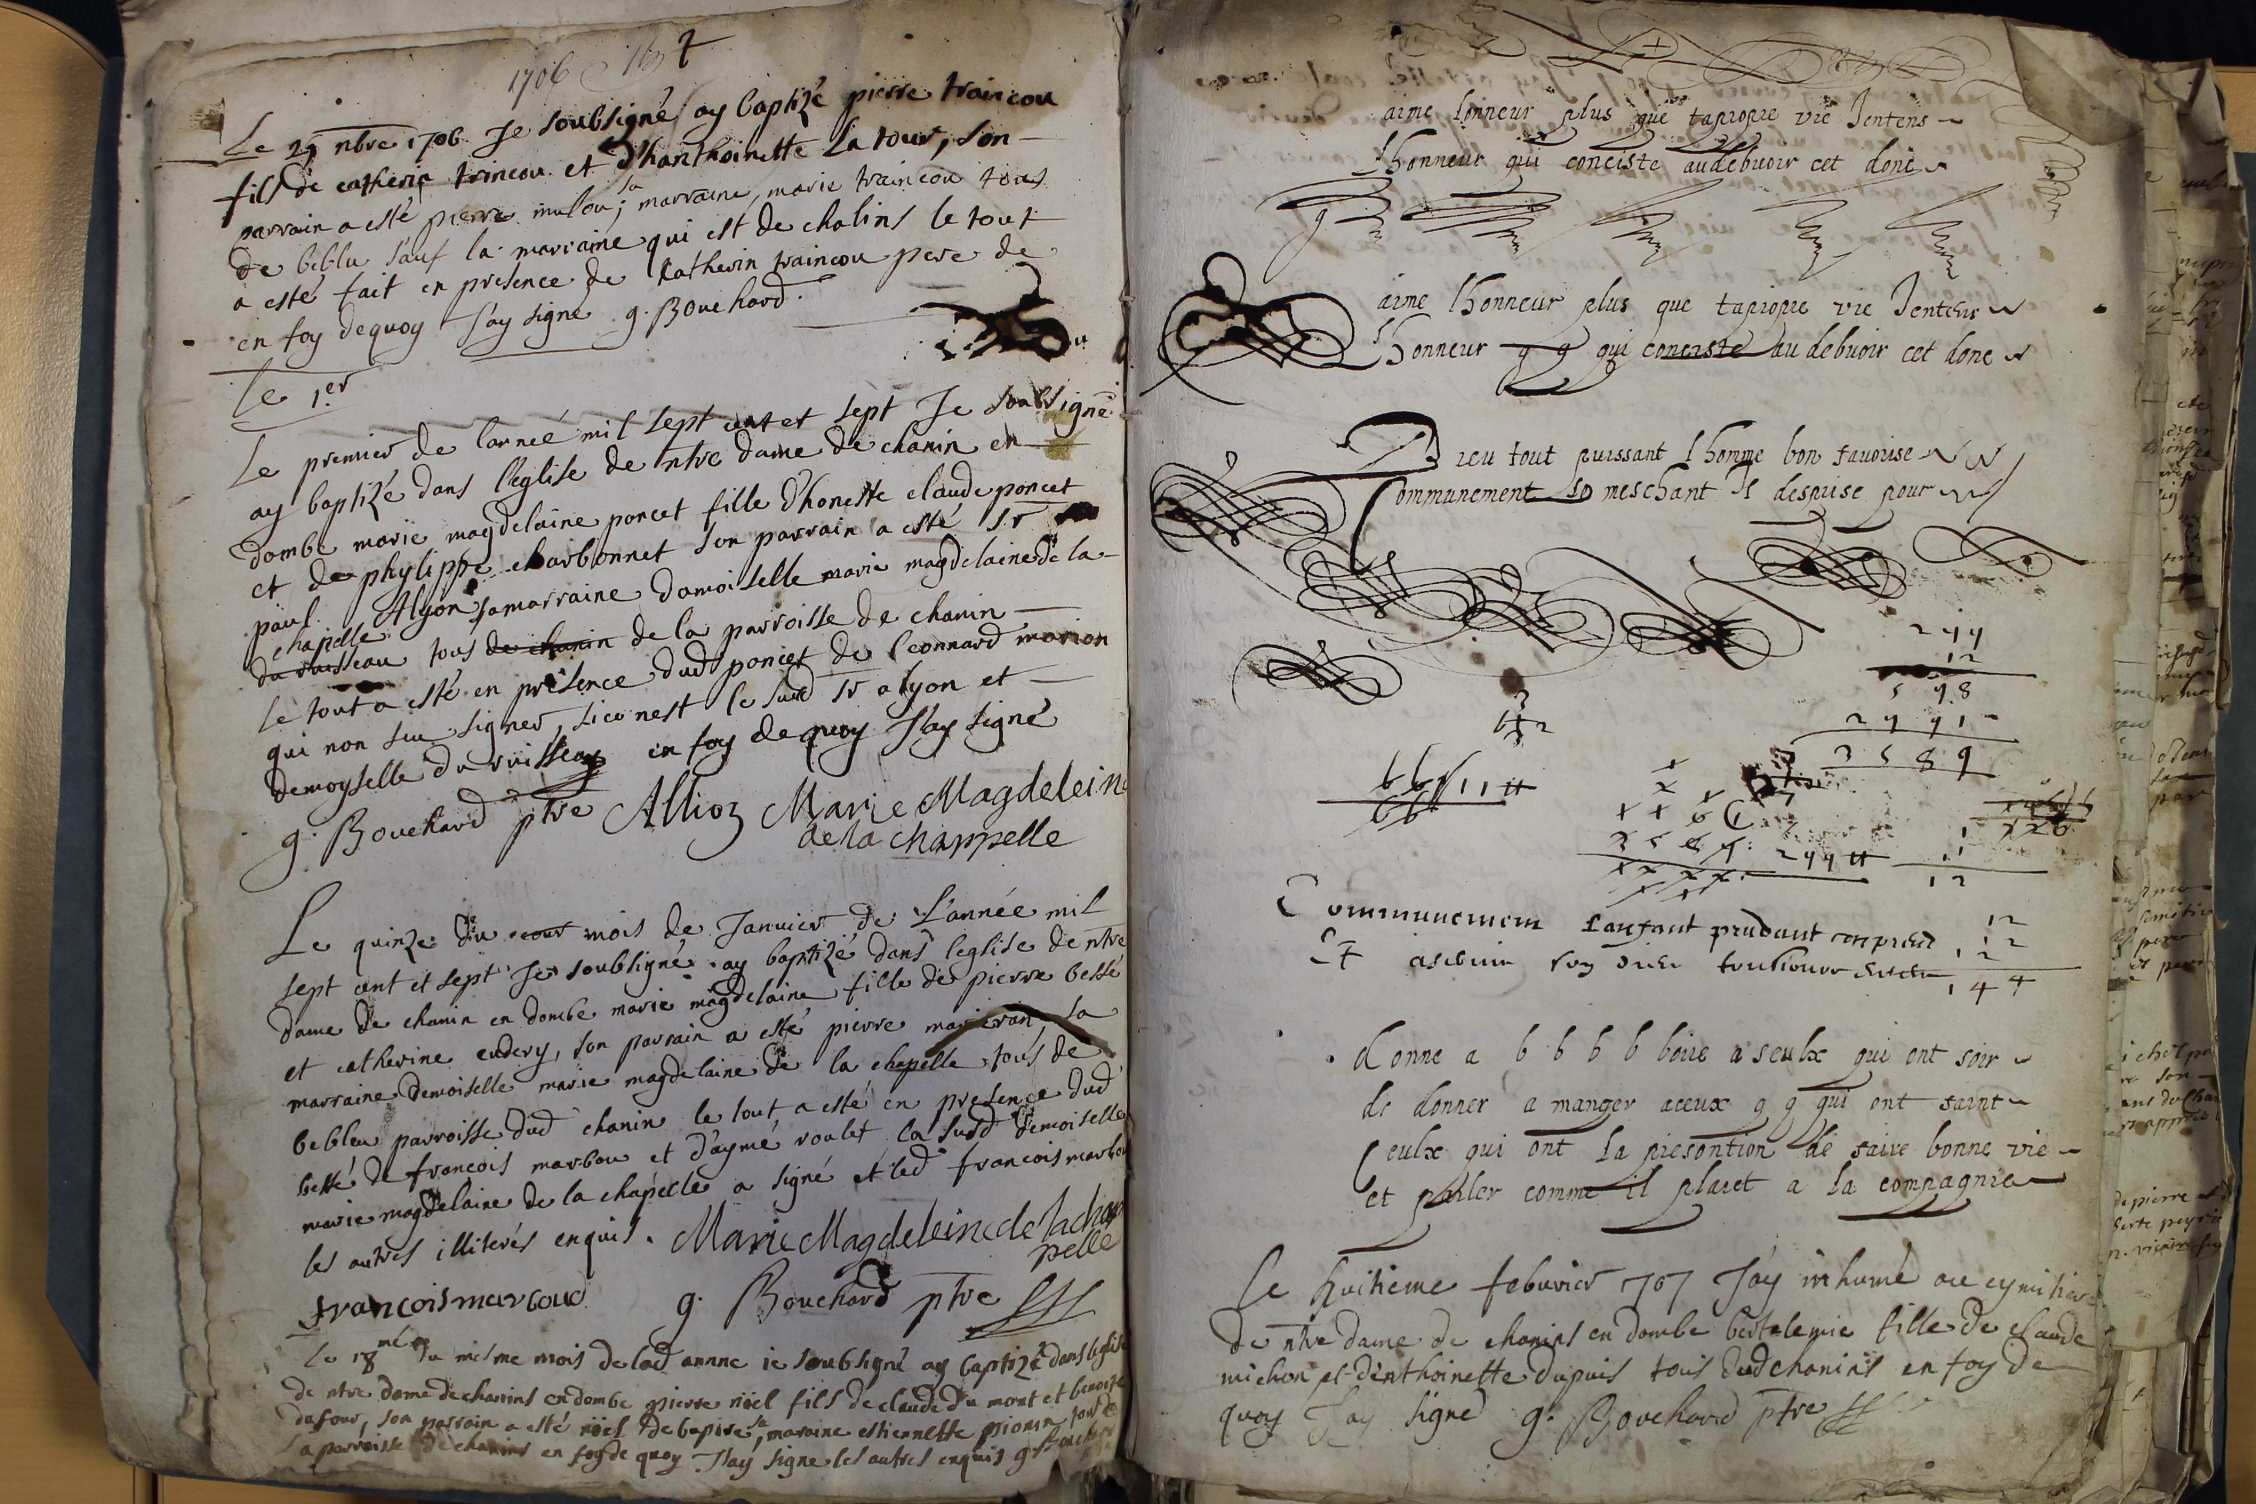 1706
Le 29 nbre 1706 Je soubsigné ay baptizé pierre traincou
fils de catherin trincou et d'hanthoinette La tour, son
parrain a esté pierre mulou; sa marraine, marie traincou tous
de beblu sauf la marraine qui est de chalins le tout
a esté fait en presence de Katherin traincou pere de
en foy dequoy J'ay signé g. Bouchard.
Le 1er
Le premier de lanneé mil sept cent et sept Je soubsigné
ay baptizé dans l'église de ntre dame de chanin en
dombe marie magdelaine poncet fille d'honeste claude poncet
et de phylippe charbonnet son parrain a esté sr
paul Alyon sa marraine damoiselle marie magdelaine de la
chapelle
du ruisseau tous de chanin de la parroisse de chanin
le tout a esté en présence dud poncet de leonnard marion
qui non sceu signer, sice nest le sud sr alyon et
demoyselle du ruisseau en foy de quoy J'ay signé
g. Bouchard ptre Allioz Marie Magdeleine
de la chappelle
Le quinze du mois de Janvier de L'année mil
sept cent et sept Je soubsigné ay baptizé dans leglise de ntre
dame de chanin en dombe marie magdelaine fille de pierre bessé
et catherine endery, son parrain a esté pierre sa
marraine demoiselle marie magdelaine de la chapelle tous de
bebleu parroisse dud chanin le tout a esté en presence dud
bessé de francois marbou et d'aymé roulet la susd demoiselle
marie magdelaine de la chapelle a signé et led francois marbou
les autres illiterés enquis. Marie Magdeleine de la chap
pelle
francois marboud g. Bouchard ptre
Le 18me du mesme mois de lad annne ie soubsigné ay baptizé dans leglise
de ntre dame de chanins en dombe pierre nöel fils de claude du mont et benoite
dufour, son parrain a esté nöel de bapire, sa maraine estiennette pionin tous de
la parroisse de chanins en foy de quoy J'ay signé les autres enquis g. Bouchard
aime lonneur plus que tapropre vie Jentens
lhonneur qui conciste audebuoir cet donc
aime lhonneur plus que tapropre vie Jentens
lhonneur q q qui conciste au debuoir cet donc
Dieu tout puissant lhomme bon favorise
Communement le meschant Il desprise pour
299
12
598
2991
3589
66 11 #
66
299 #
1
11
12
Communement Lanfant prudant conprend
Et
12
12
144
donne a b b b b boire a seulx qui ont soir
de donner a manger aceux q q qui ont faint
Ceulx qui ont la presontion de faire bonne vie
et parler comme il plaict a la compagnie
Le huitieme febuvier 1707 J'ay inhumé au cymitier
de ntre dame de chanins en dombe bertelemie fille de claude
michon et d'enthoinette dupuis tous dud chanins en foy de
quoy J'ay signé g. Bouchard ptre